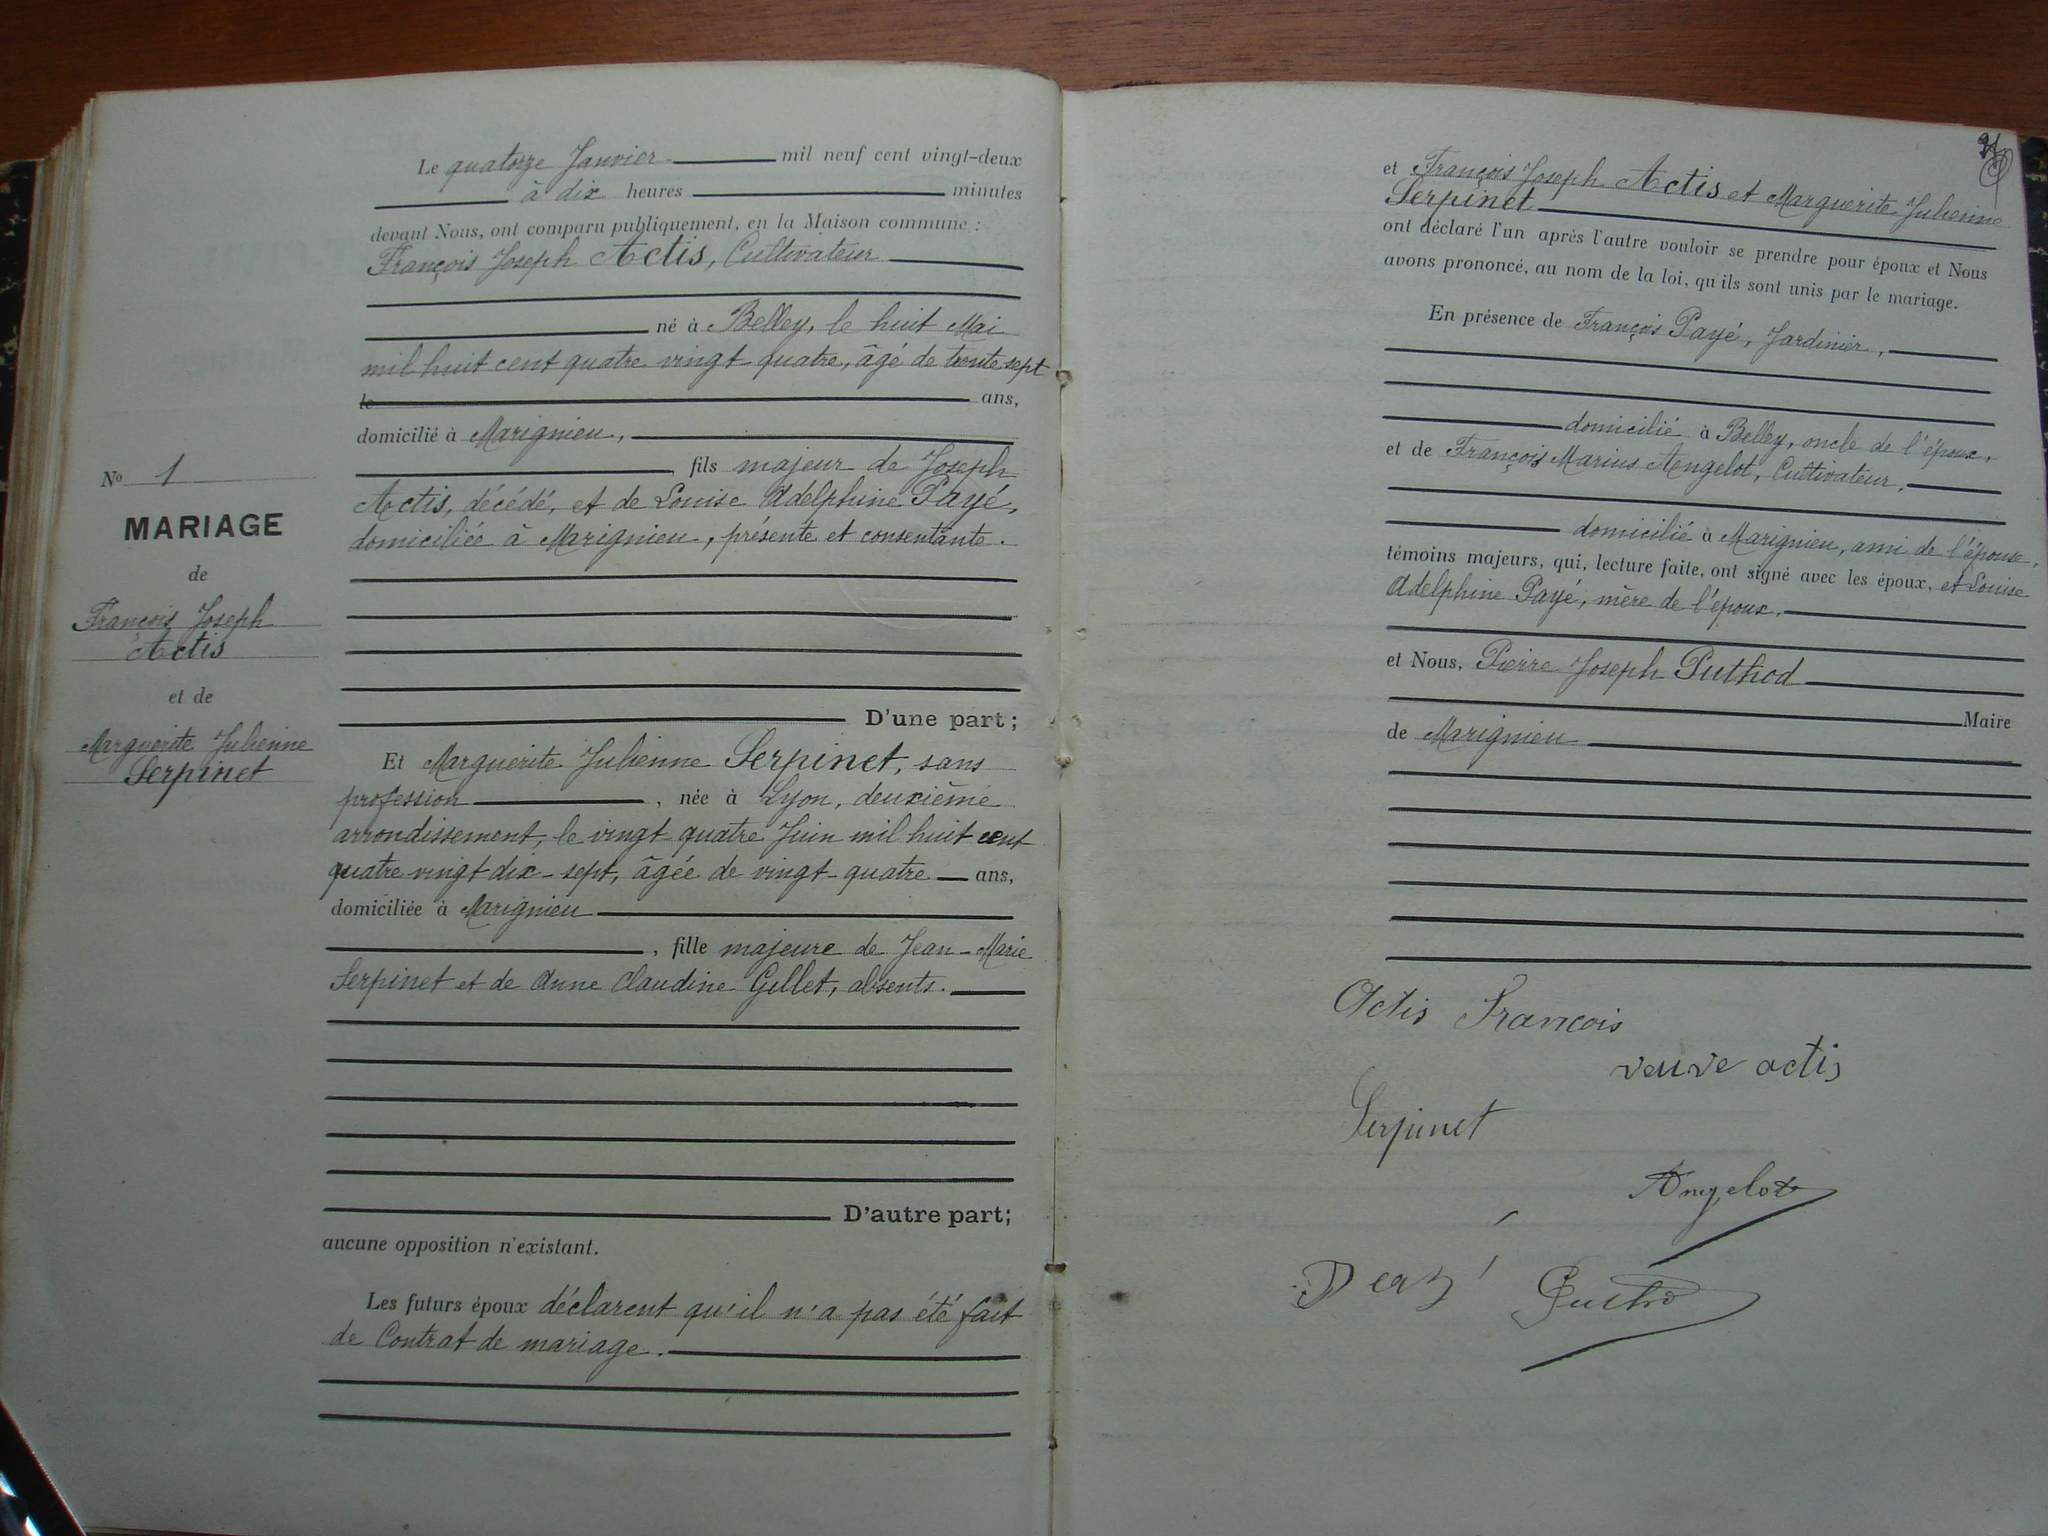 Le quatorze Janvier mil neuf cent vingt-deux
à dix heures minutes
devant Nous, ont comparu publiquement, en la Maison commune :
François Joseph Actis, Cultivateur
né à Belley, le huit Mai
mil huit cent quatre vingt-quatre, âgé de trente sept
le ans,
domicilié à Marignieu,
, fils majeur de Joseph
Actis, décédé, et de Louise Adelphine Payé,
domiciliée à Marignieu, présente et consentante.
D'une part ;
No 1
MARIAGE
de
François Joseph
Actis
et de
Marguerite Julienne
Serpinet
Et Marguerite Julienne Serpinet, sans
profession , née à Lyon, deuxième
arrondissement, le vingt quatre Juin mil huit cent
quatre vingt dix-sept, âgée de vingt-quatre ans,
domiciliée à Marignieu
, fille majeure de Jean-Marie
Serpinet et de Anne Claudine Gillet, absents.
D'autre part;
aucune opposition n'existant.
Les futurs époux déclarent qu'il n'a pas été fait
de Contrat de mariage.
et François Joseph Actis et Marguerite Julienne
Serpinet
ont déclaré l'un après l'autre vouloir se prendre pour époux et Nous
avons prononcé, au nom de la loi, qu'ils sont unis par le mariage.
En présence de François Payé, Jardinier,
domicilié à Belley, oncle de l'époux,
et de François Marius Angelot, Cultivateur,
domicilié à Marignieu, ami de l'épouse,
témoins majeurs, qui, lecture faite, ont signé avec les époux, et Louise
Adelphine Payé, mère de l'époux.
et Nous, Pierre Joseph Puthod
Maire
de Marignieu
Actis François
veuve actis
Serpinet
Angelot
Puthod